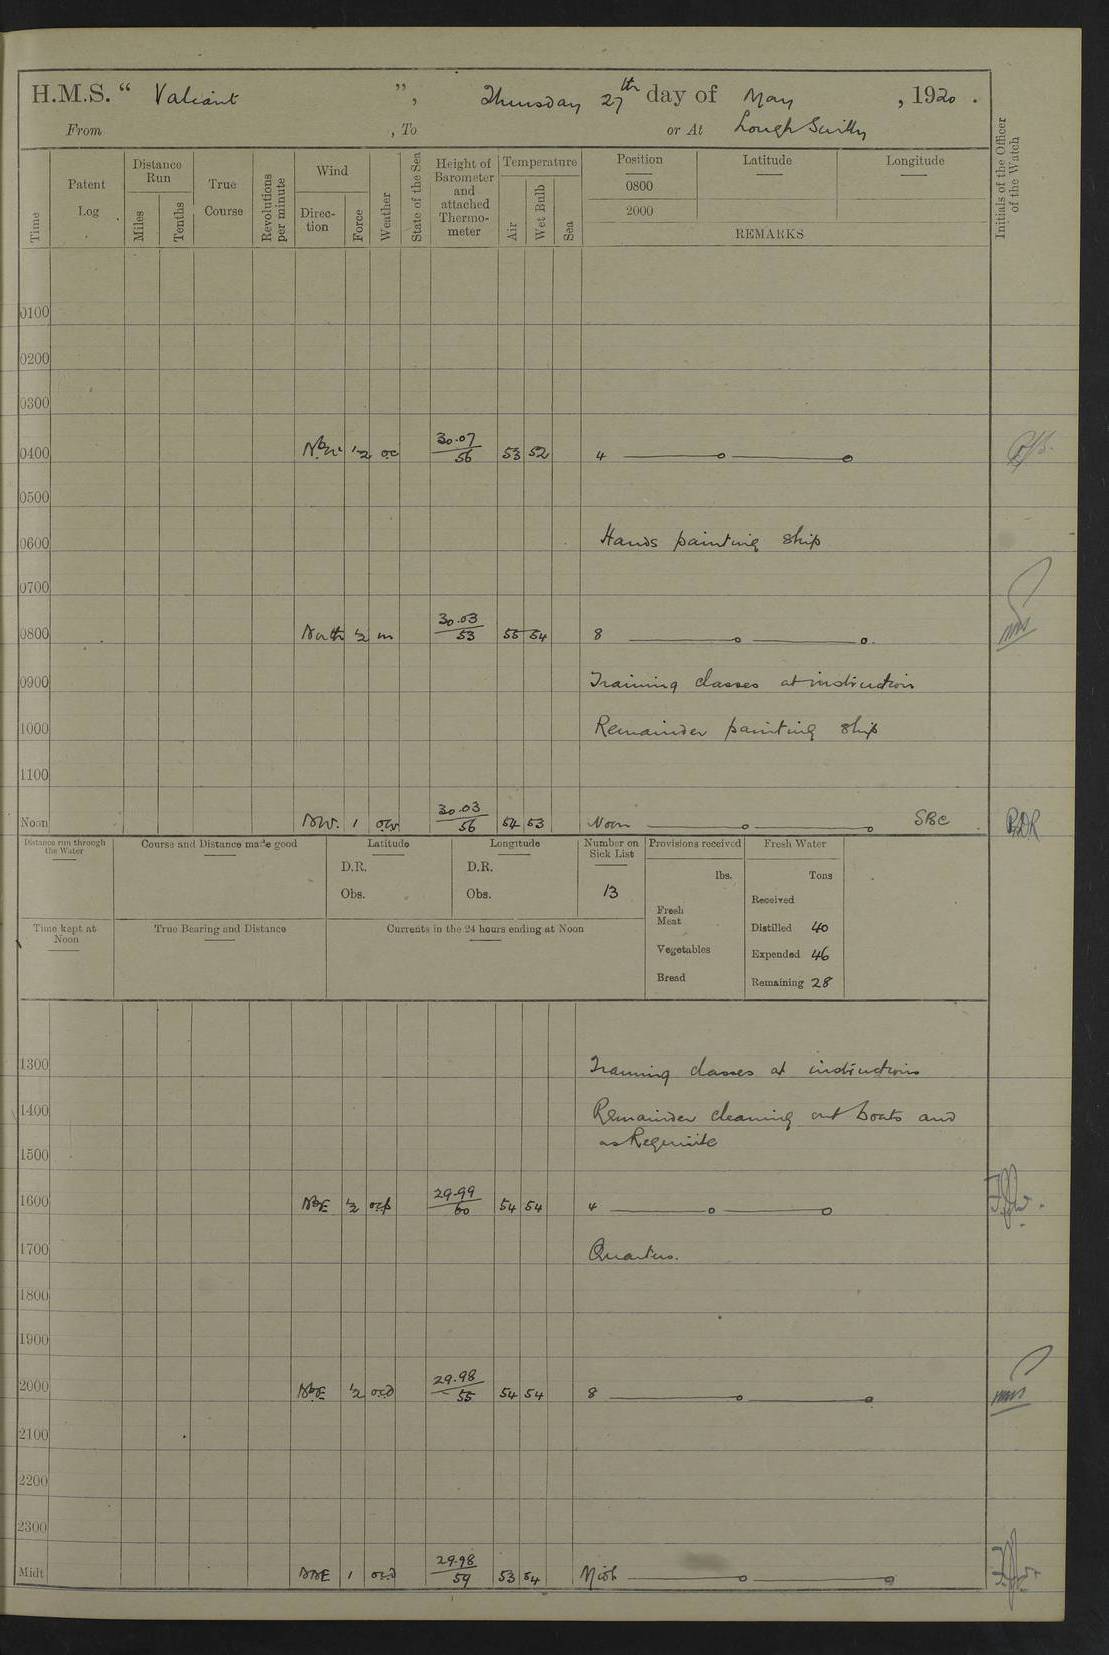 H.M.S. “ Valiant ”, Thursday 27th day of May, 1920.
From , To or At Lough Swilly
Time
Patent Log
Distance Run
Miles
Tenths
True Course
Revolutions per minute
Wind
Direction
Force
Weather
State of the Sea
Height of Barometer and attached Thermometer
Temperature
Air
Wet Bulb
Sea
Position
Latitude
Longitude
0800
2000
REMARKS
Initials of the Officer of the Watch
0100
0200
0300
0400 NbW 1/2 oc 30.07/56 53 52 4
0500
0600 Hands painting ship
0700
0800 North 1/2 m 30.03/53 55 54 8
0900 Training classes at instruction
1000 Remainder painting ship
1100
Noon NW. 1 30.03/56 54 53 Noon SBC BDR
Distance run through the Water
Course and Distance made good
Latitude
D.R.
Obs.
Longitude
D.R.
Obs.
Number on Sick List
13
Provisions received
lbs.
Fresh Meat
Vegetables
Bread
Fresh Water
Tons
Received
Distilled 40
Expended 46
Remaining 28
Time kept at Noon
True Bearing and Distance
Currents in the 24 hours ending at Noon
1300 Training classes at instructions
1400 Remainder cleaning out boats and
as Requisite
1500
1600 NbE 1/2 29.99/60 54 54 4
1700 Quarters.
1800
1900
2000 NbE 1/2 ocd 29.98/55 54 54 8
2100
2200
2300
Midt NNE 1 ocd 29.98/59 53 54 Midt